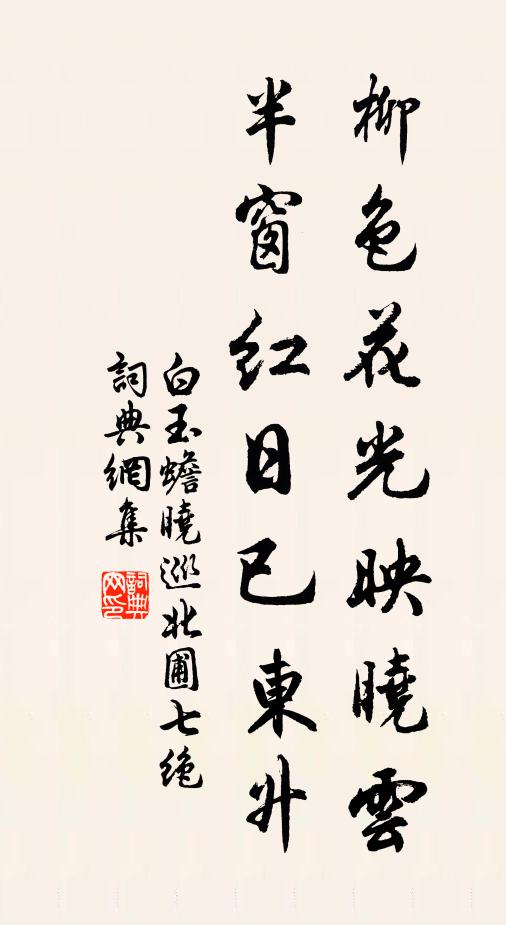 柳色花光映曉雲
半窗紅日已東升
白玉蟾曉巡北圃七絕
詞典網集
詞典
网印